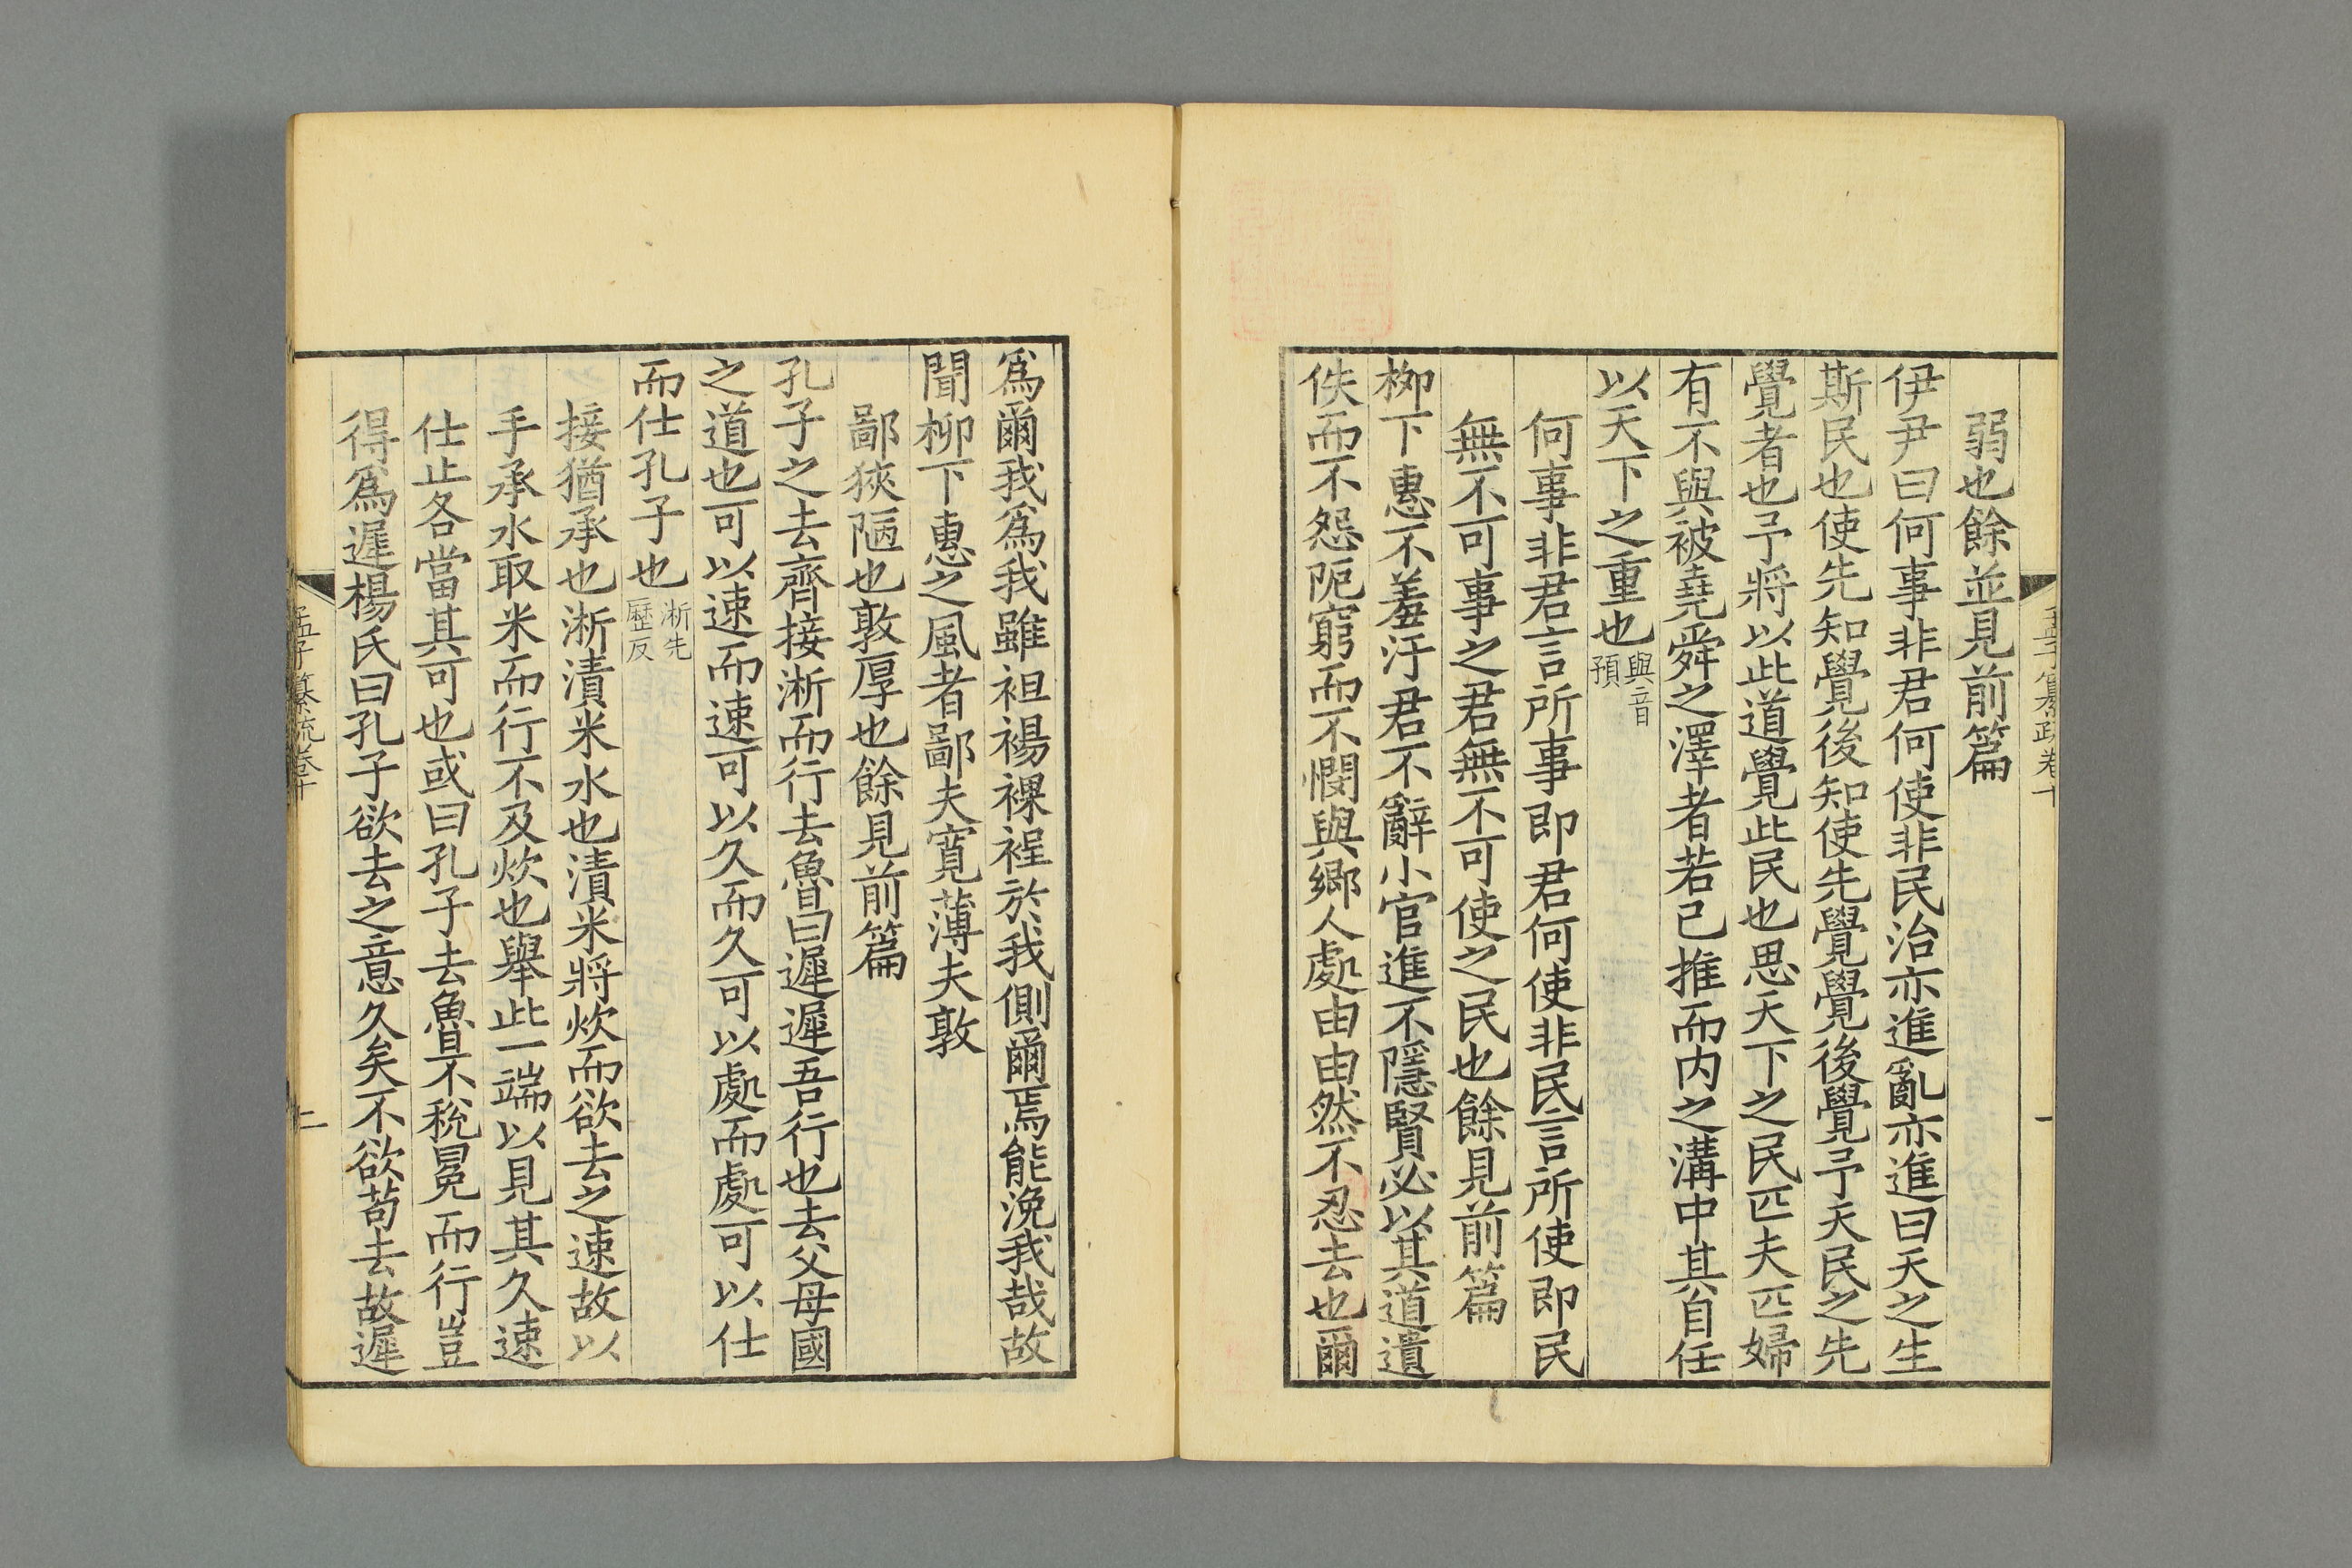 弱也餘並見前篇
伊尹曰何事非君何使非民治亦進亂亦進曰天之生
斯民也使先知覺後知使先覺覺後覺予天民之先
覺者也予將以此道覺此民也思天下之民匹夫匹婦
有不與被堯舜之澤者若己推而内之溝中其自任
以天下之重也與音預
何事非君言所事即君何使非民言所使即民
無不可事之君無不可使之民也餘見前篇
柳下惠不羞汙君不辭小官進不隱賢必以其道遺
佚而不怨阨窮而不憫與鄉人處由由然不忍去也爾
孟子纂疏卷十
一
爲爾我爲我雖袒裼裸裎於我側爾焉能浼我哉故
聞柳下惠之風者鄙夫寬薄夫敦
鄙狹陋也敦厚也餘見前篇
孔子之去齊接淅而行去魯曰遲遲吾行也去父母國
之道也可以速而速可以久而久可以處而處可以仕
而仕孔子也淅先歷反
接猶承也淅漬米水也漬米將炊而欲去之速故以
手承水取米而行不及炊也舉此一端以見其久速
仕止各當其可也或曰孔子去魯不稅冕而行豈
得爲遲楊氏曰孔子欲去之意久矣不欲苟去故遲
孟子纂疏卷十
二